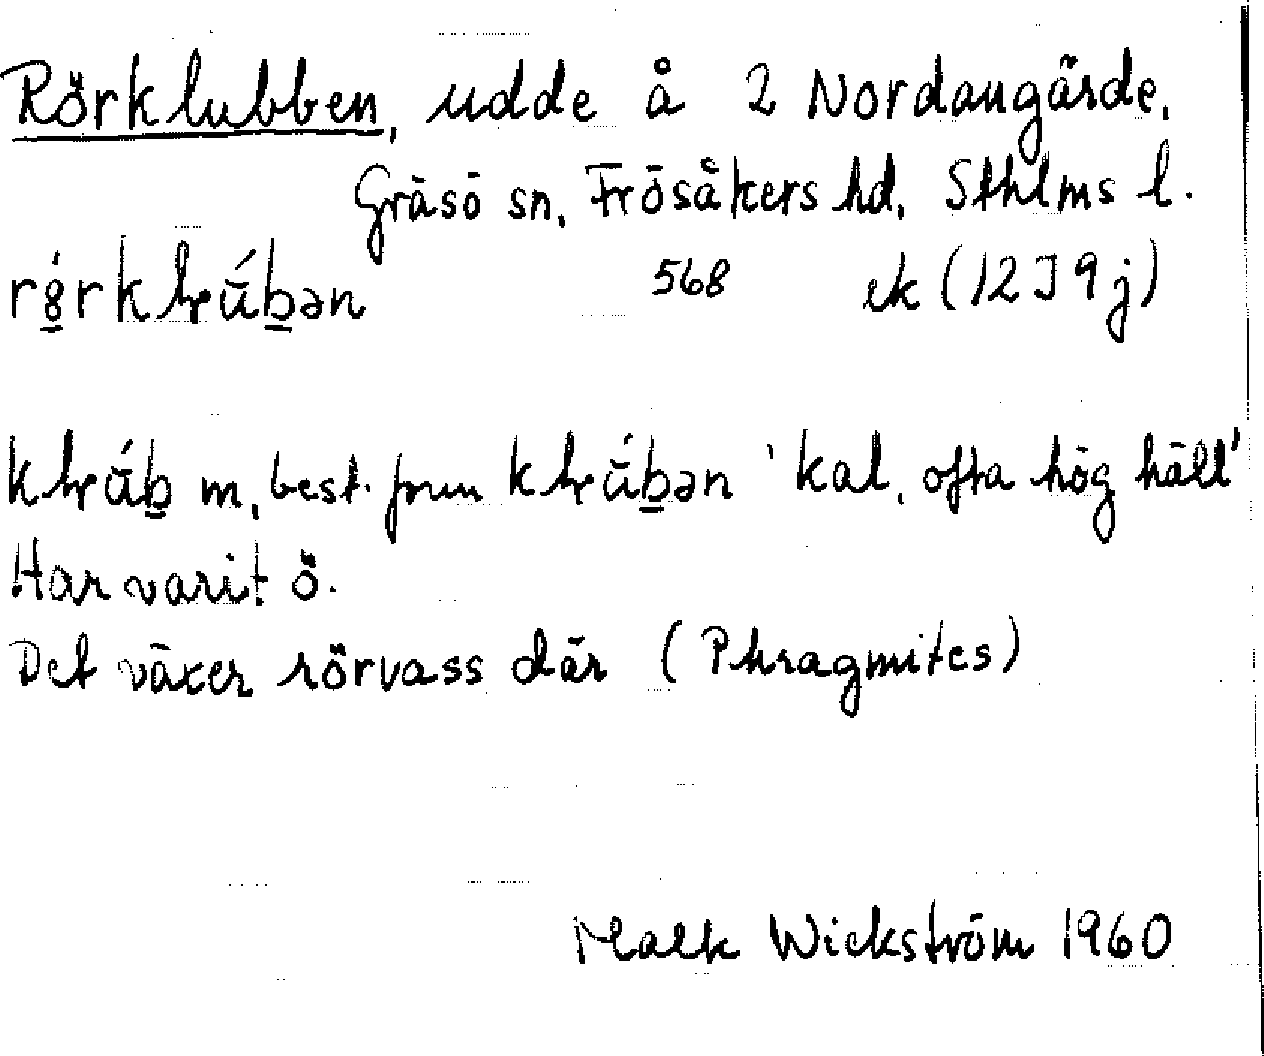 Rörklubben, udde å 2 Nordangärde,
Gräsö sn, Frösåkers hd, Sthlms l.
568 ek (12J9j)
m, best. form 'kal, ofta hög häll'
Har varit ö.
Det växer rörvass där (Phragmites)
Maek Wickström 1960